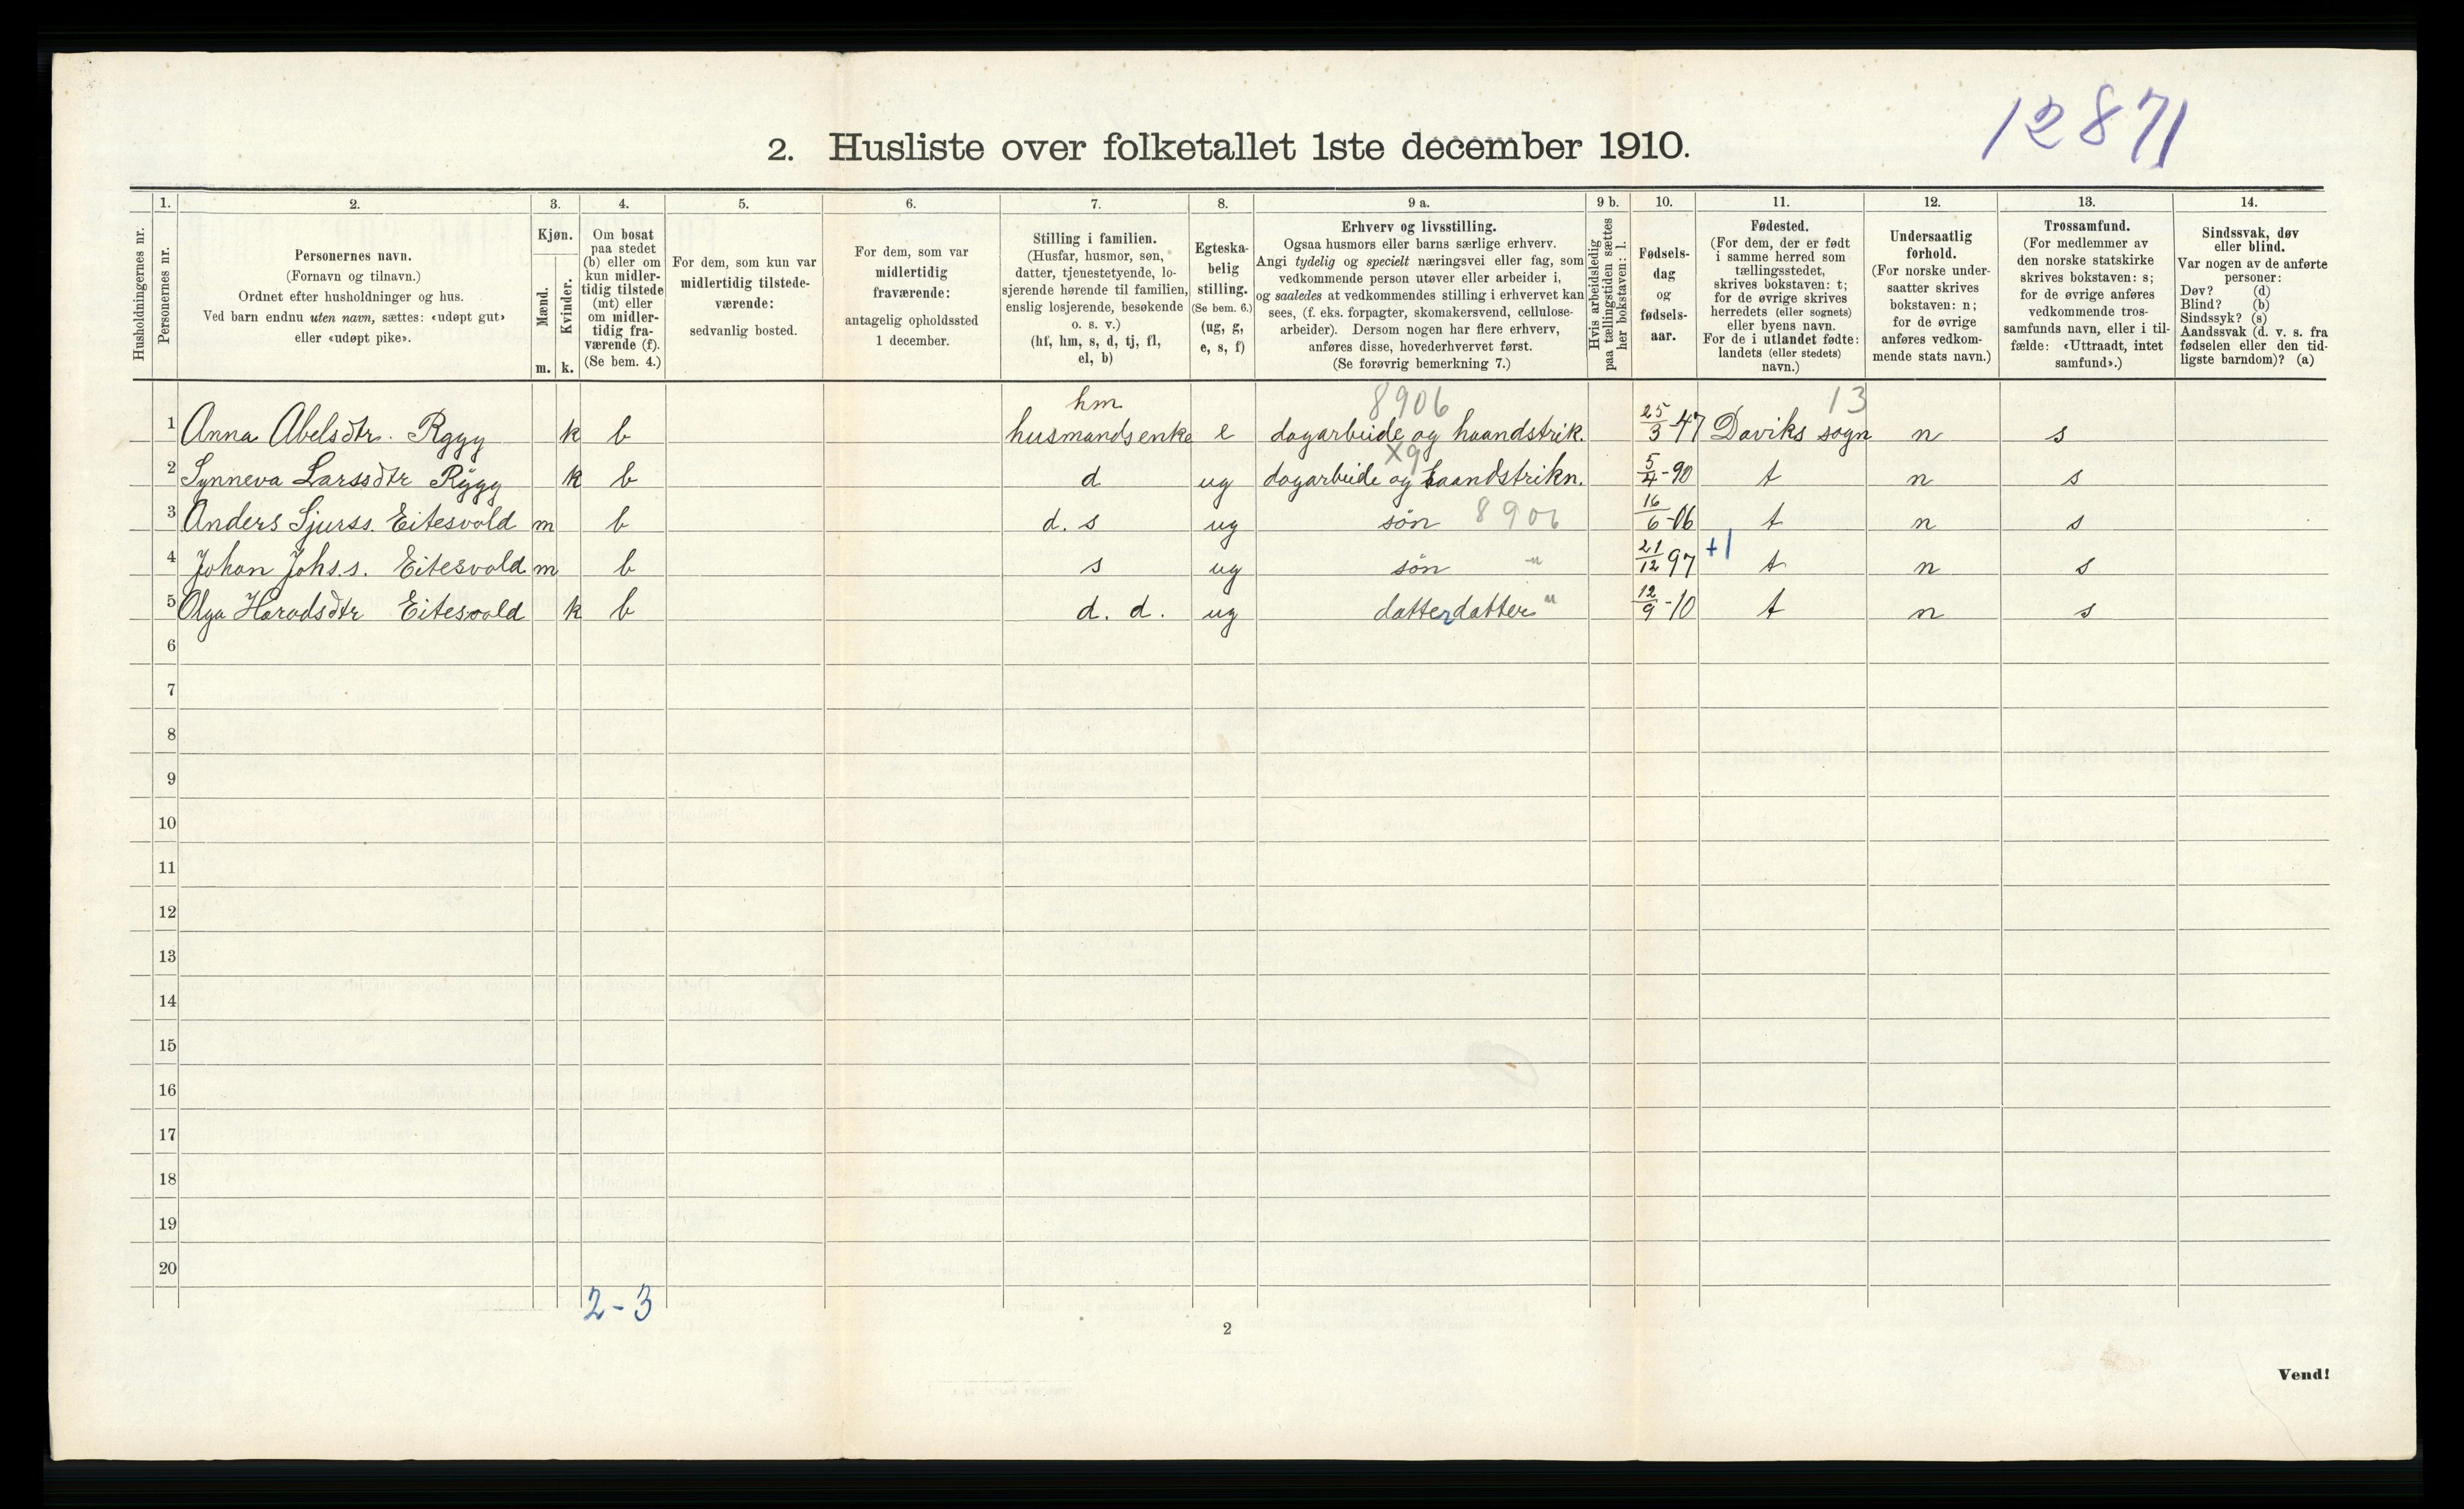 12871
2. Husliste over folketallet 1ste december 1910.
Husholdningernes nr.
1.
Personernes nr.
2.
Personernes navn.
(Fornavn og tilnavn.)
Ordnet efter husholdninger og hus.
Ved barn endnu uten navn, sættes: «udøpt gut»
eller «udøpt pike».
3.
Kjøn.
Mænd.
Kvinder.
m. k.
4.
Om bosat
paa stedet
(b) eller om
kun midler-
tidig tilstede
(mt) eller
om midler-
tidig fra-
værende (f).
(Se bem. 4.)
5.
For dem, som kun var
midlertidig tilstede-
værende:
sedvanlig bosted.
6.
For dem, som var
midlertidig
fraværende:
antagelig opholdssted
1 december.
7.
Stilling i familien.
(Husfar, husmor, søn,
datter, tjenestetyende, lo-
sjerende hørende til familien,
enslig losjerende, besøkende
o. s. v.)
(hf, hm, s, d, tj, fl,
el, b)
8.
Egteska-
belig
stilling.
(Se bem. 6.)
(ug, g,
e, s, f)
9 a.
Erhverv og livsstilling.
Ogsaa husmors eller barns særlige erhverv.
Angi tydelig og specielt næringsvei eller fag, som
vedkommende person utøver eller arbeider i,
og saaledes at vedkommendes stilling i erhvervet kan
sees, (f. eks. forpagter, skomakersvend, cellulose-
arbeider). Dersom nogen har flere erhverv,
anføres disse, hovederhvervet først.
(Se forøvrig bemerkning 7.)
9 b.
Hvis arbeidsledig
paa tællingstiden sættes
her bokstaven: l.
10.
Fødsels-
dag
og
fødsels-
aar.
11.
Fødested.
(For dem, der er født
i samme herred som
tællingsstedet,
skrives bokstaven: t;
for de øvrige skrives
herredets (eller sognets)
eller byens navn.
For de i utlandet fødte:
landets (eller stedets)
navn.)
12.
Undersaatlig
forhold.
(For norske under-
saatter skrives
bokstaven: n;
for de øvrige
anføres vedkom-
mende stats navn.)
13.
Trossamfund.
(For medlemmer av
den norske statskirke
skrives bokstaven: s;
for de øvrige anføres
vedkommende tros-
samfunds navn, eller i til-
fælde: «Uttraadt, intet
samfund».)
14.
Sindssvak, døv
eller blind.
Var nogen av de anførte
personer:
Døv? (d)
Blind? (b)
Sindssyk? (s)
Aandssvak (d. v. s. fra
fødselen eller den tid-
ligste barndom)? (a)
hm 8906 13
1 Anna Abelsdtr. Rygg k b husmandsenke e dagarbeide og haandstrik. 25/3-47 Daviks sogn n s
X9
2 Synneva Larssdtr Rygg k b d ug dagarbeide og haandstrikn. 5/4-90 t n s
3 Anders Sjurss. Eitesvold m b d. s ug søn 8906 16/6-06 t n s
4 Johan Johs.s. Eitesvold m b s ug søn " 21/12 97 +1 t n s
5 Olga Haradsdtr Eitesvold k b d. d. ug datterdatter " 12/9-10 t n s
6
7
8
9
10
11
12
13
14
15
16
17
18
19
20
2-3
2
Vend!